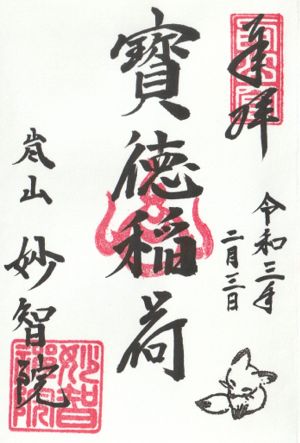 奉拝
令和三年
二月三日
寶德稲荷
嵐山
妙智院
妙智院